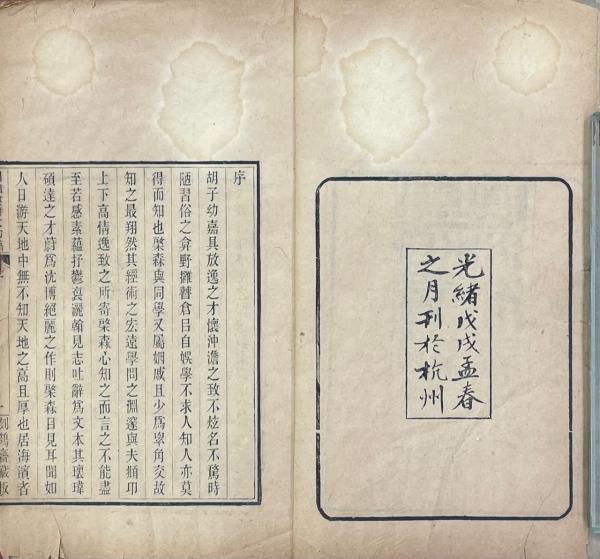 光緒戊戌孟春
之月刊於杭州
序
胡子幼嘉具放逸之才懷沖澹之致不炫名不騖時
陋習俗之弇野攤瞽倉呂自娛學不求人知人亦莫
得而知也棨森與同學又屬姻戚且少為丱角交故
知之最翔然其經術之宏遠學問之淵邃與夫頫卬
上下高情逸致之所寄棨森心知之而言之不能盡
至若感素蘊抒鬱襄灑翰見志吐辭為文本其瓌瑋
碩達之才蔚為沈博絕麗之作則棨森目見耳聞如
人日游天地中無不知天地之高且厚也居海濱者
刻鵠齋藏板